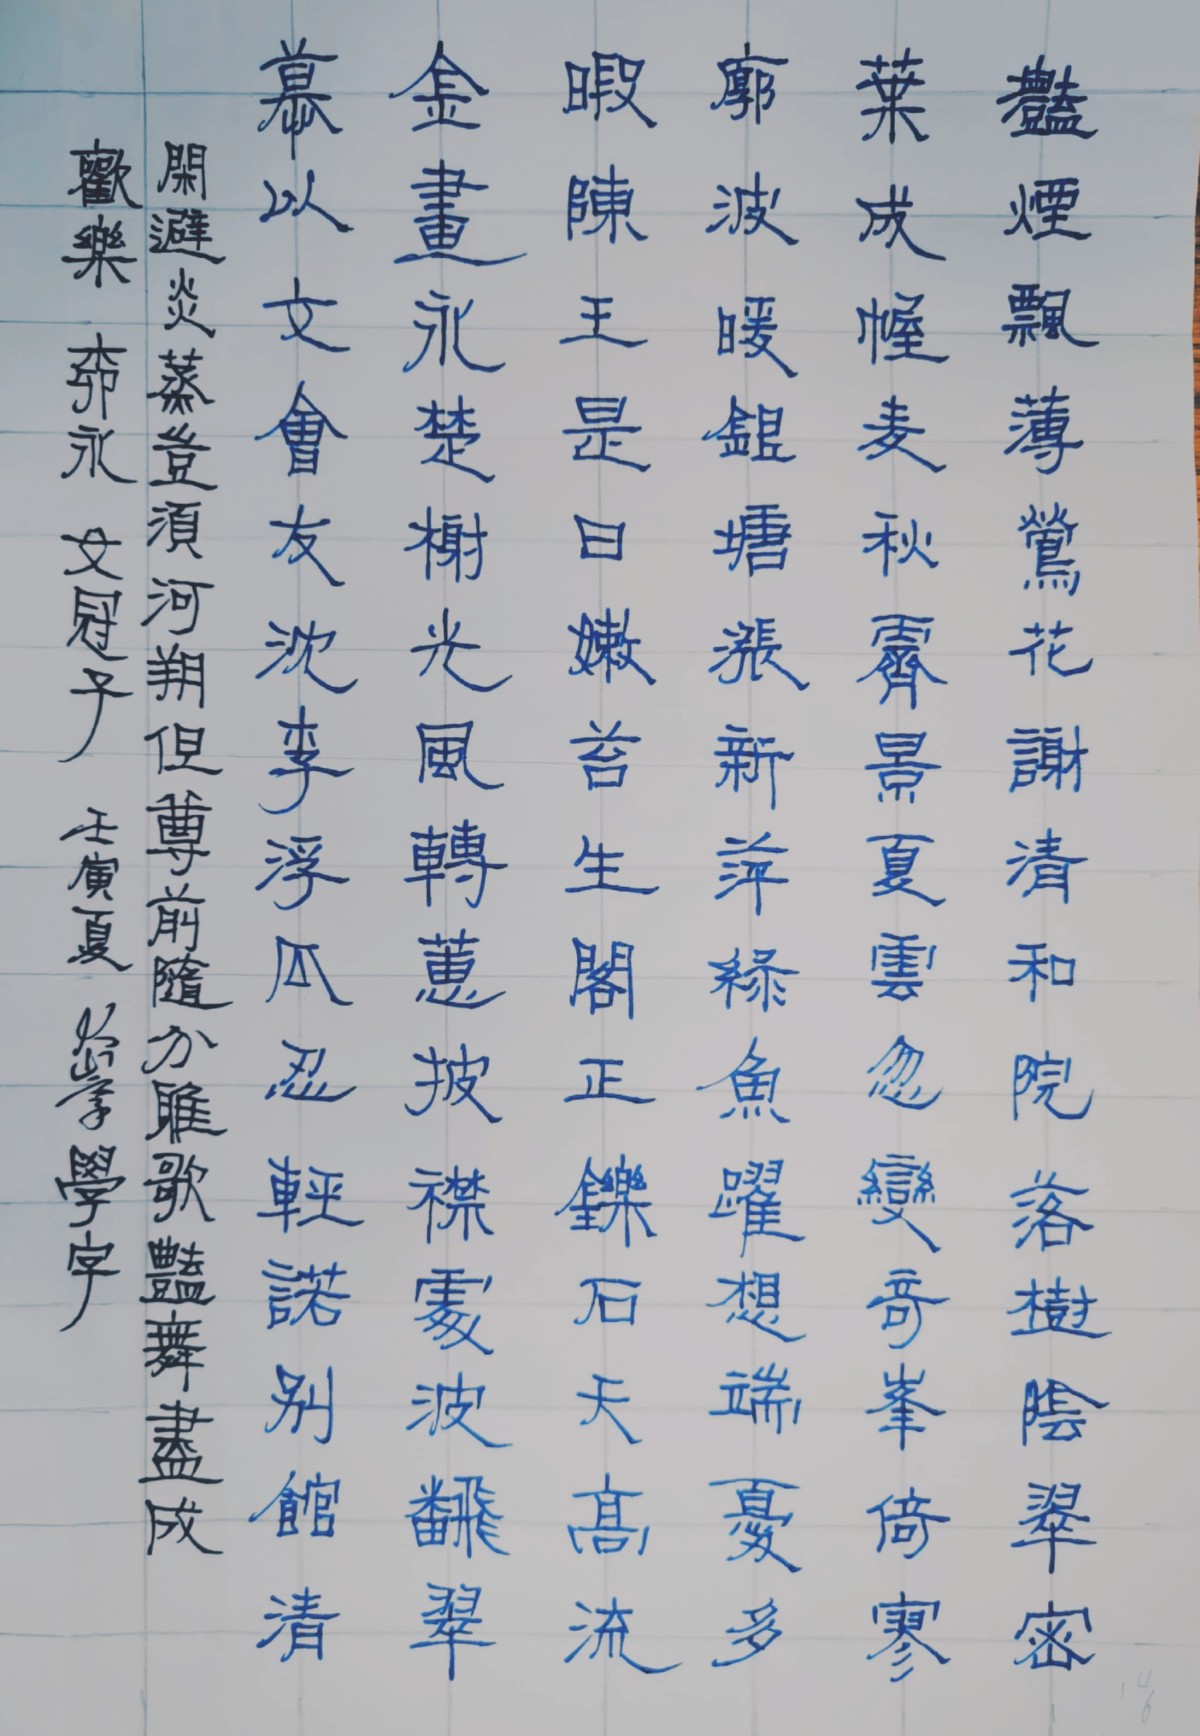 豔煙飄薄鶯花謝清和院落樹陰翠密
葉成幄麦秋霽景夏雲忽變奇峯倚寥
廓波暖銀塘漲新萍綠魚躍想端憂多
暇陳王是日嫩苔生閣正鑠石天高流
金畫永楚榭光風轉蕙披襟處波飜翠
幕以文會友沈李浮瓜忍輕諾別館清
閑避炎蒸豈須河朔但尊前隨分雅歌豔舞盡成
歡樂 柳永 女冠子 壬寅夏 學字